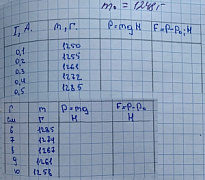 m₀ = 1248г
I, А. m, г. P=mg Н F=P-P₀, Н
0,1 1250
0,2 1255
0,3 1261
0,4 1272
0,5 1285
r m P=mg F=P-P₀
см г Н Н
6 1285
7 1274
8 1267
9 1261
10 1258